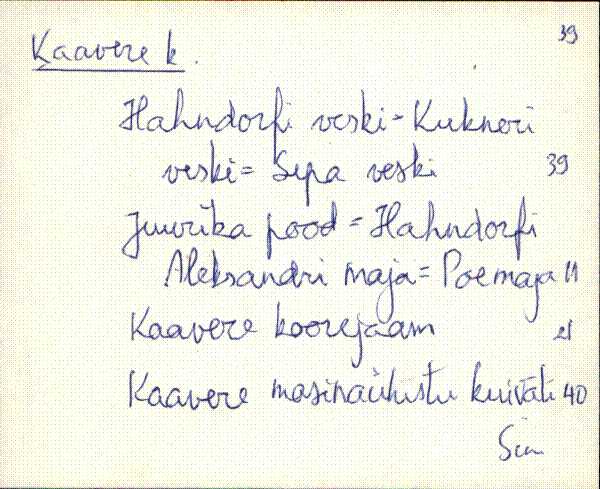 39
Kaavere k.
Hahndorfi veski = Kukneri
veski = Sepa veski 39
Juurika pood = Hahndorfi
Aleksandri maja = Poemaja 11
Kaavere koorejaam 21
Kaavere masinaühistu kuivati 40